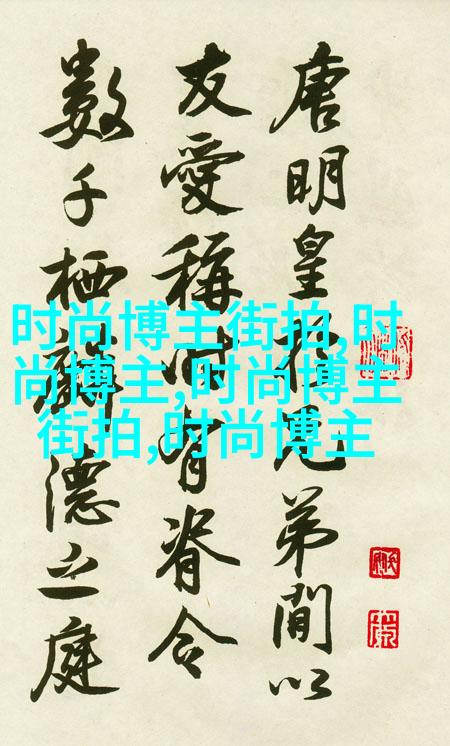 唐明皇於兄弟間以
友愛稱時有脊令
數千栖麟德之庭
时尚博主街拍,时
尚博主,时尚博主
街拍,时尚博主